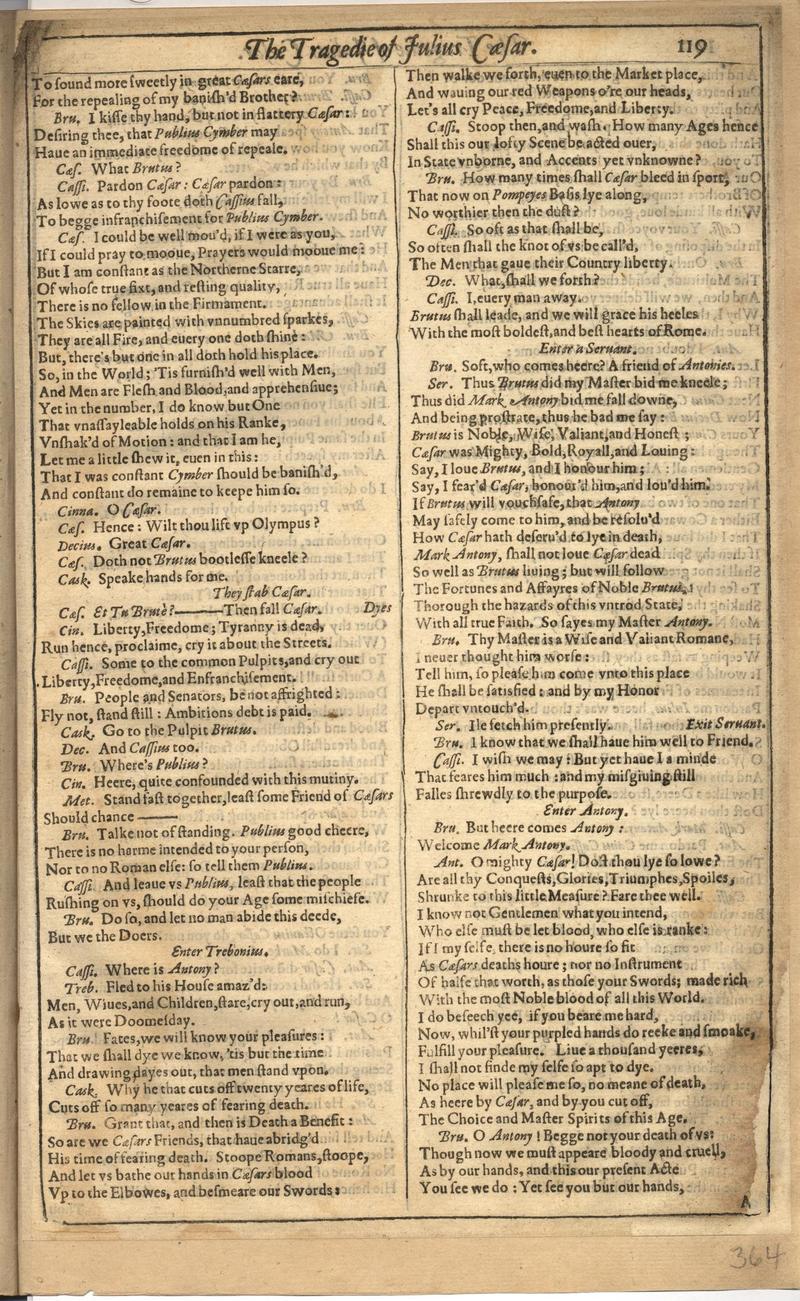 The Tragedie of Julius Cæsar. 119
To sound more sweetly in great Cæsars eare,
For the repealing of my banish'd Brother?
Bru. I kisse thy hand, but not in flattery Cæsar:
Desiring thee, that Publius Cymber may
Haue an immediate freedome of repeale.
Cæs. What Brutus?
Cassi. Pardon Cæsar: Cæsar pardon:
As lowe as to thy foote doth Cassius fall,
To begge infranchisement for Publius Cymber.
Cæs. I could be well mou'd, if I were as you,
If I could pray to mooue, Prayers would mooue me:
But I am constant as the Northerne Starre,
Of whose true fixt, and resting quality,
There is no fellow in the Firmament.
The Skies are painted with vnnumbred sparkes,
They are all Fire, and euery one doth shine:
But, there's but one in all doth hold his place.
So, in the World; 'Tis furnish'd well with Men,
And Men are Flesh and Blood, and apprehensiue;
Yet in the number, I do know but One
That vnassayleable holds on his Ranke,
Vnshak'd of Motion: and that I am he,
Let me a little shew it, euen in this:
That I was constant Cymber should be banish'd,
And constant do remaine to keepe him so.
Cinna. O Cæsar.
Cæs. Hence: Wilt thou lift vp Olympus?
Decius. Great Cæsar.
Cæs. Doth not Brutus bootlesse kneele?
Cask. Speake hands for me.
They stab Cæsar.
Cæs. Et Tu Brutè?——Then fall Cæsar. Dyes
Cin. Liberty, Freedome; Tyranny is dead,
Run hence, proclaime, cry it about the Streets.
Cassi. Some to the common Pulpits, and cry out
Liberty, Freedome, and Enfranchisement.
Bru. People and Senators, be not affrighted:
Fly not, stand still: Ambitions debt is paid.
Cask. Go to the Pulpit Brutus.
Dec. And Cassius too.
Bru. Where's Publius?
Cin. Heere, quite confounded with this mutiny.
Met. Stand fast together, least some Friend of Cæsars
Should chance——
Bru. Talke not of standing. Publius good cheere,
There is no harme intended to your person,
Nor to no Roman else: so tell them Publius.
Cassi. And leaue vs Publius, least that the people
Rushing on vs, should do your Age some mischiefe.
Bru. Do so, and let no man abide this deede,
But we the Doers.
Enter Trebonius.
Cassi. Where is Antony?
Treb. Fled to his House amaz'd:
Men, Wiues, and Children, stare, cry out, and run,
As it were Doomesday.
Bru. Fates, we will know your pleasures:
That we shall dye we know, 'tis but the time
And drawing dayes out, that men stand vpon.
Cask. Why he that cuts off twenty yeares of life,
Cuts off so many yeares of fearing death.
Bru. Grant that, and then is Death a Benefit:
So are we Cæsars Friends, that haue abridg'd
His time of fearing death. Stoope Romans, stoope,
And let vs bathe our hands in Cæsars blood
Vp to the Elbowes, and besmeare our Swords:
Then walke we forth, euen to the Market place,
And wauing our red Weapons o're our heads,
Let's all cry Peace, Freedome, and Liberty.
Cassi. Stoop then, and wash. How many Ages hence
Shall this our lofty Scene be acted ouer,
In State vnborne, and Accents yet vnknowne?
Bru. How many times shall Cæsar bleed in sport,
That now on Pompeyes Basis lye along,
No worthier then the dust?
Cassi. So oft as that shall be,
So often shall the knot of vs be call'd,
The Men that gaue their Country liberty.
Dec. What, shall we forth?
Cassi. I, euery man away.
Brutus shall leade, and we will grace his heeles
With the most boldest, and best hearts of Rome.
Enter a Seruant.
Bru. Soft, who comes heere? A friend of Antonies.
Ser. Thus Brutus did my Master bid me kneele;
Thus did Mark Antony bid me fall downe,
And being prostrate, thus he bad me say:
Brutus is Noble, Wise, Valiant, and Honest;
Cæsar was Mighty, Bold, Royall, and Louing:
Say, I loue Brutus, and I honour him;
Say, I fear'd Cæsar, honour'd him, and lou'd him.
If Brutus will vouchsafe, that Antony
May safely come to him, and be resolu'd
How Cæsar hath deseru'd to lye in death,
Mark Antony, shall not loue Cæsar dead
So well as Brutus liuing; but will follow
The Fortunes and Affayres of Noble Brutus,
Thorough the hazards of this vntrod State,
With all true Faith. So sayes my Master Antony.
Bru. Thy Master is a Wise and Valiant Romane,
I neuer thought him worse:
Tell him, so please him come vnto this place
He shall be satisfied: and by my Honor
Depart vntouch'd.
Ser. Ile fetch him presently. Exit Seruant.
Bru. I know that we shall haue him well to Friend.
Cassi. I wish we may: But yet haue I a minde
That feares him much: and my misgiuing still
Falles shrewdly to the purpose.
Enter Antony.
Bru. But heere comes Antony:
Welcome Mark Antony.
Ant. O mighty Cæsar! Dost thou lye so lowe?
Are all thy Conquests, Glories, Triumphes, Spoiles,
Shrunke to this little Measure? Fare thee well.
I know not Gentlemen what you intend,
Who else must be let blood, who else is ranke:
If I my selfe, there is no houre so fit
As Cæsars deaths houre; nor no Instrument
Of halfe that worth, as those your Swords; made rich
With the most Noble blood of all this World.
I do beseech yee, if you beare me hard,
Now, whil'st your purpled hands do reeke and smoake,
Fulfill your pleasure. Liue a thousand yeeres,
I shall not finde my selfe so apt to dye.
No place will please me so, no meane of death,
As heere by Cæsar, and by you cut off,
The Choice and Master Spirits of this Age.
Bru. O Antony! Begge not your death of vs:
Though now we must appeare bloody and cruell,
As by our hands, and this our present Acte
You see we do: Yet see you but our hands,
A
364